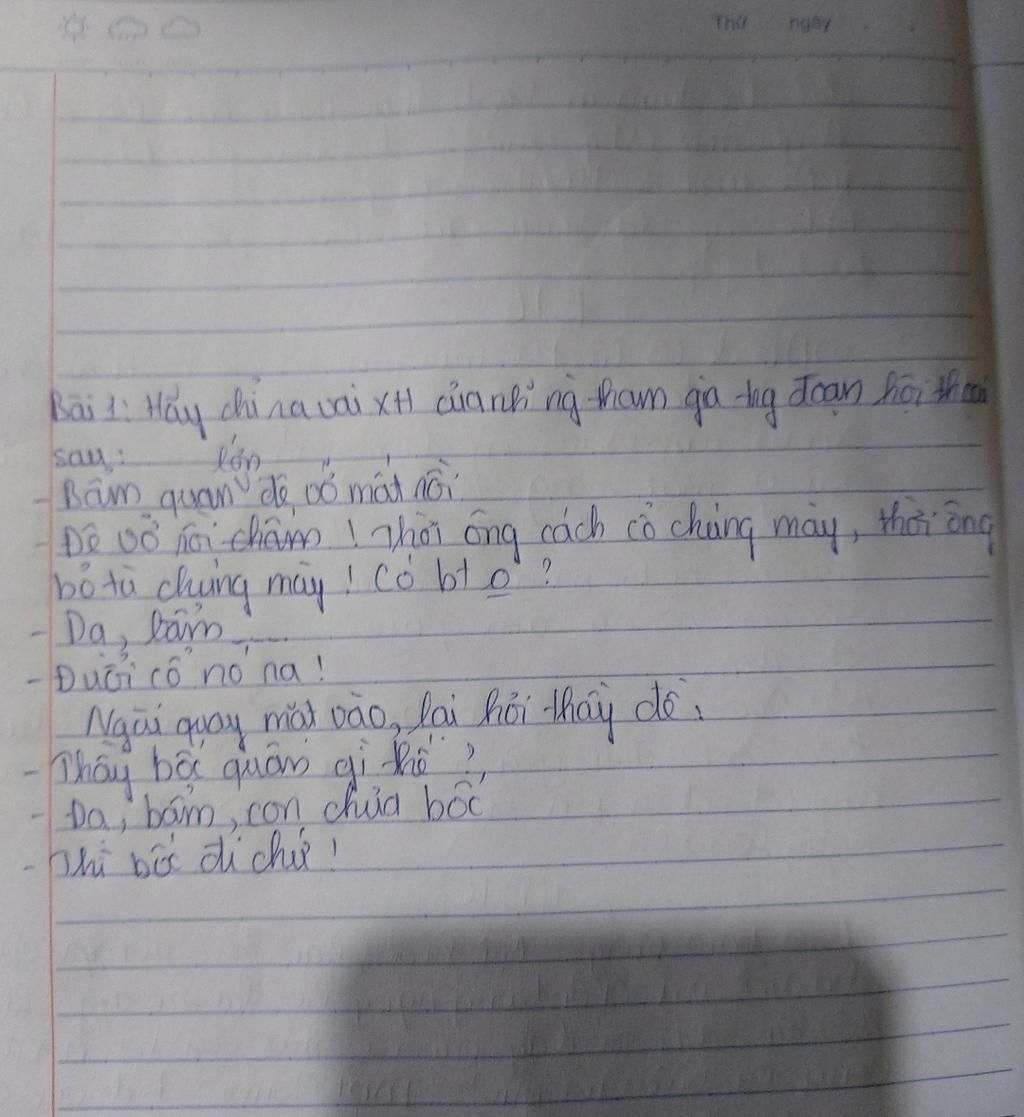 Thứ ngày
Bài 1: Hãy chỉ ra vai XH của nh~ ng` tham gia tr̀g đoạn hội thoại
sau:
- Bẩm quan lớn đê vỡ mất rồi.
- Đê vỡ rồi chăm ! Thời ông cách cổ chúng mày, thời ông
bỏ tù chúng mày ! Có bt o ?
- Dạ, bẩm ....
- Đuổi cổ nó ra !
Ngài quay mặt vào, lại hỏi thầy đề:
- Thầy bốc quân gì thế ?
- Dạ, bẩm, con chưa bốc
- Thì bốc đi chứ !